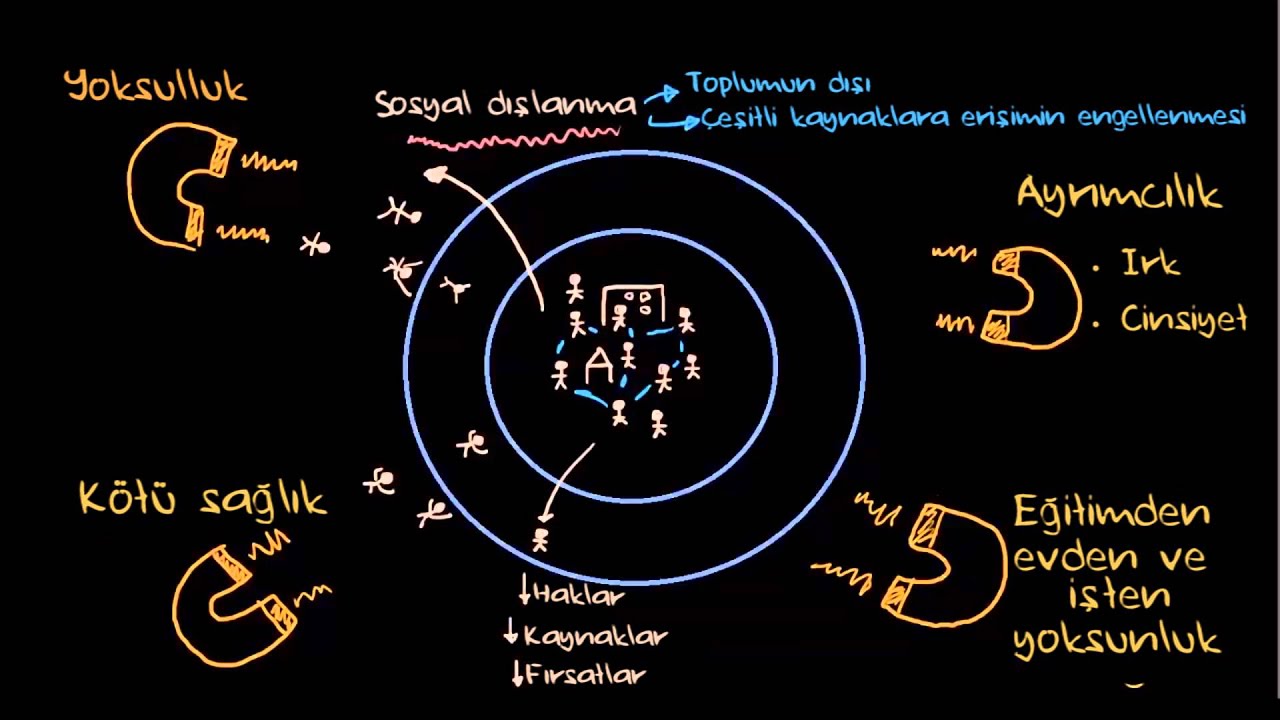 Yoksulluk
Sosyal dışlanma
Toplumun dışı
Çeşitli kaynaklara erişimin engellenmesi
Ayrımcılık
· Irk
· Cinsiyet
A
Kötü sağlık
Eğitimden
evden ve
işten
yoksunluk
↓Haklar
↓Kaynaklar
↓Fırsatlar